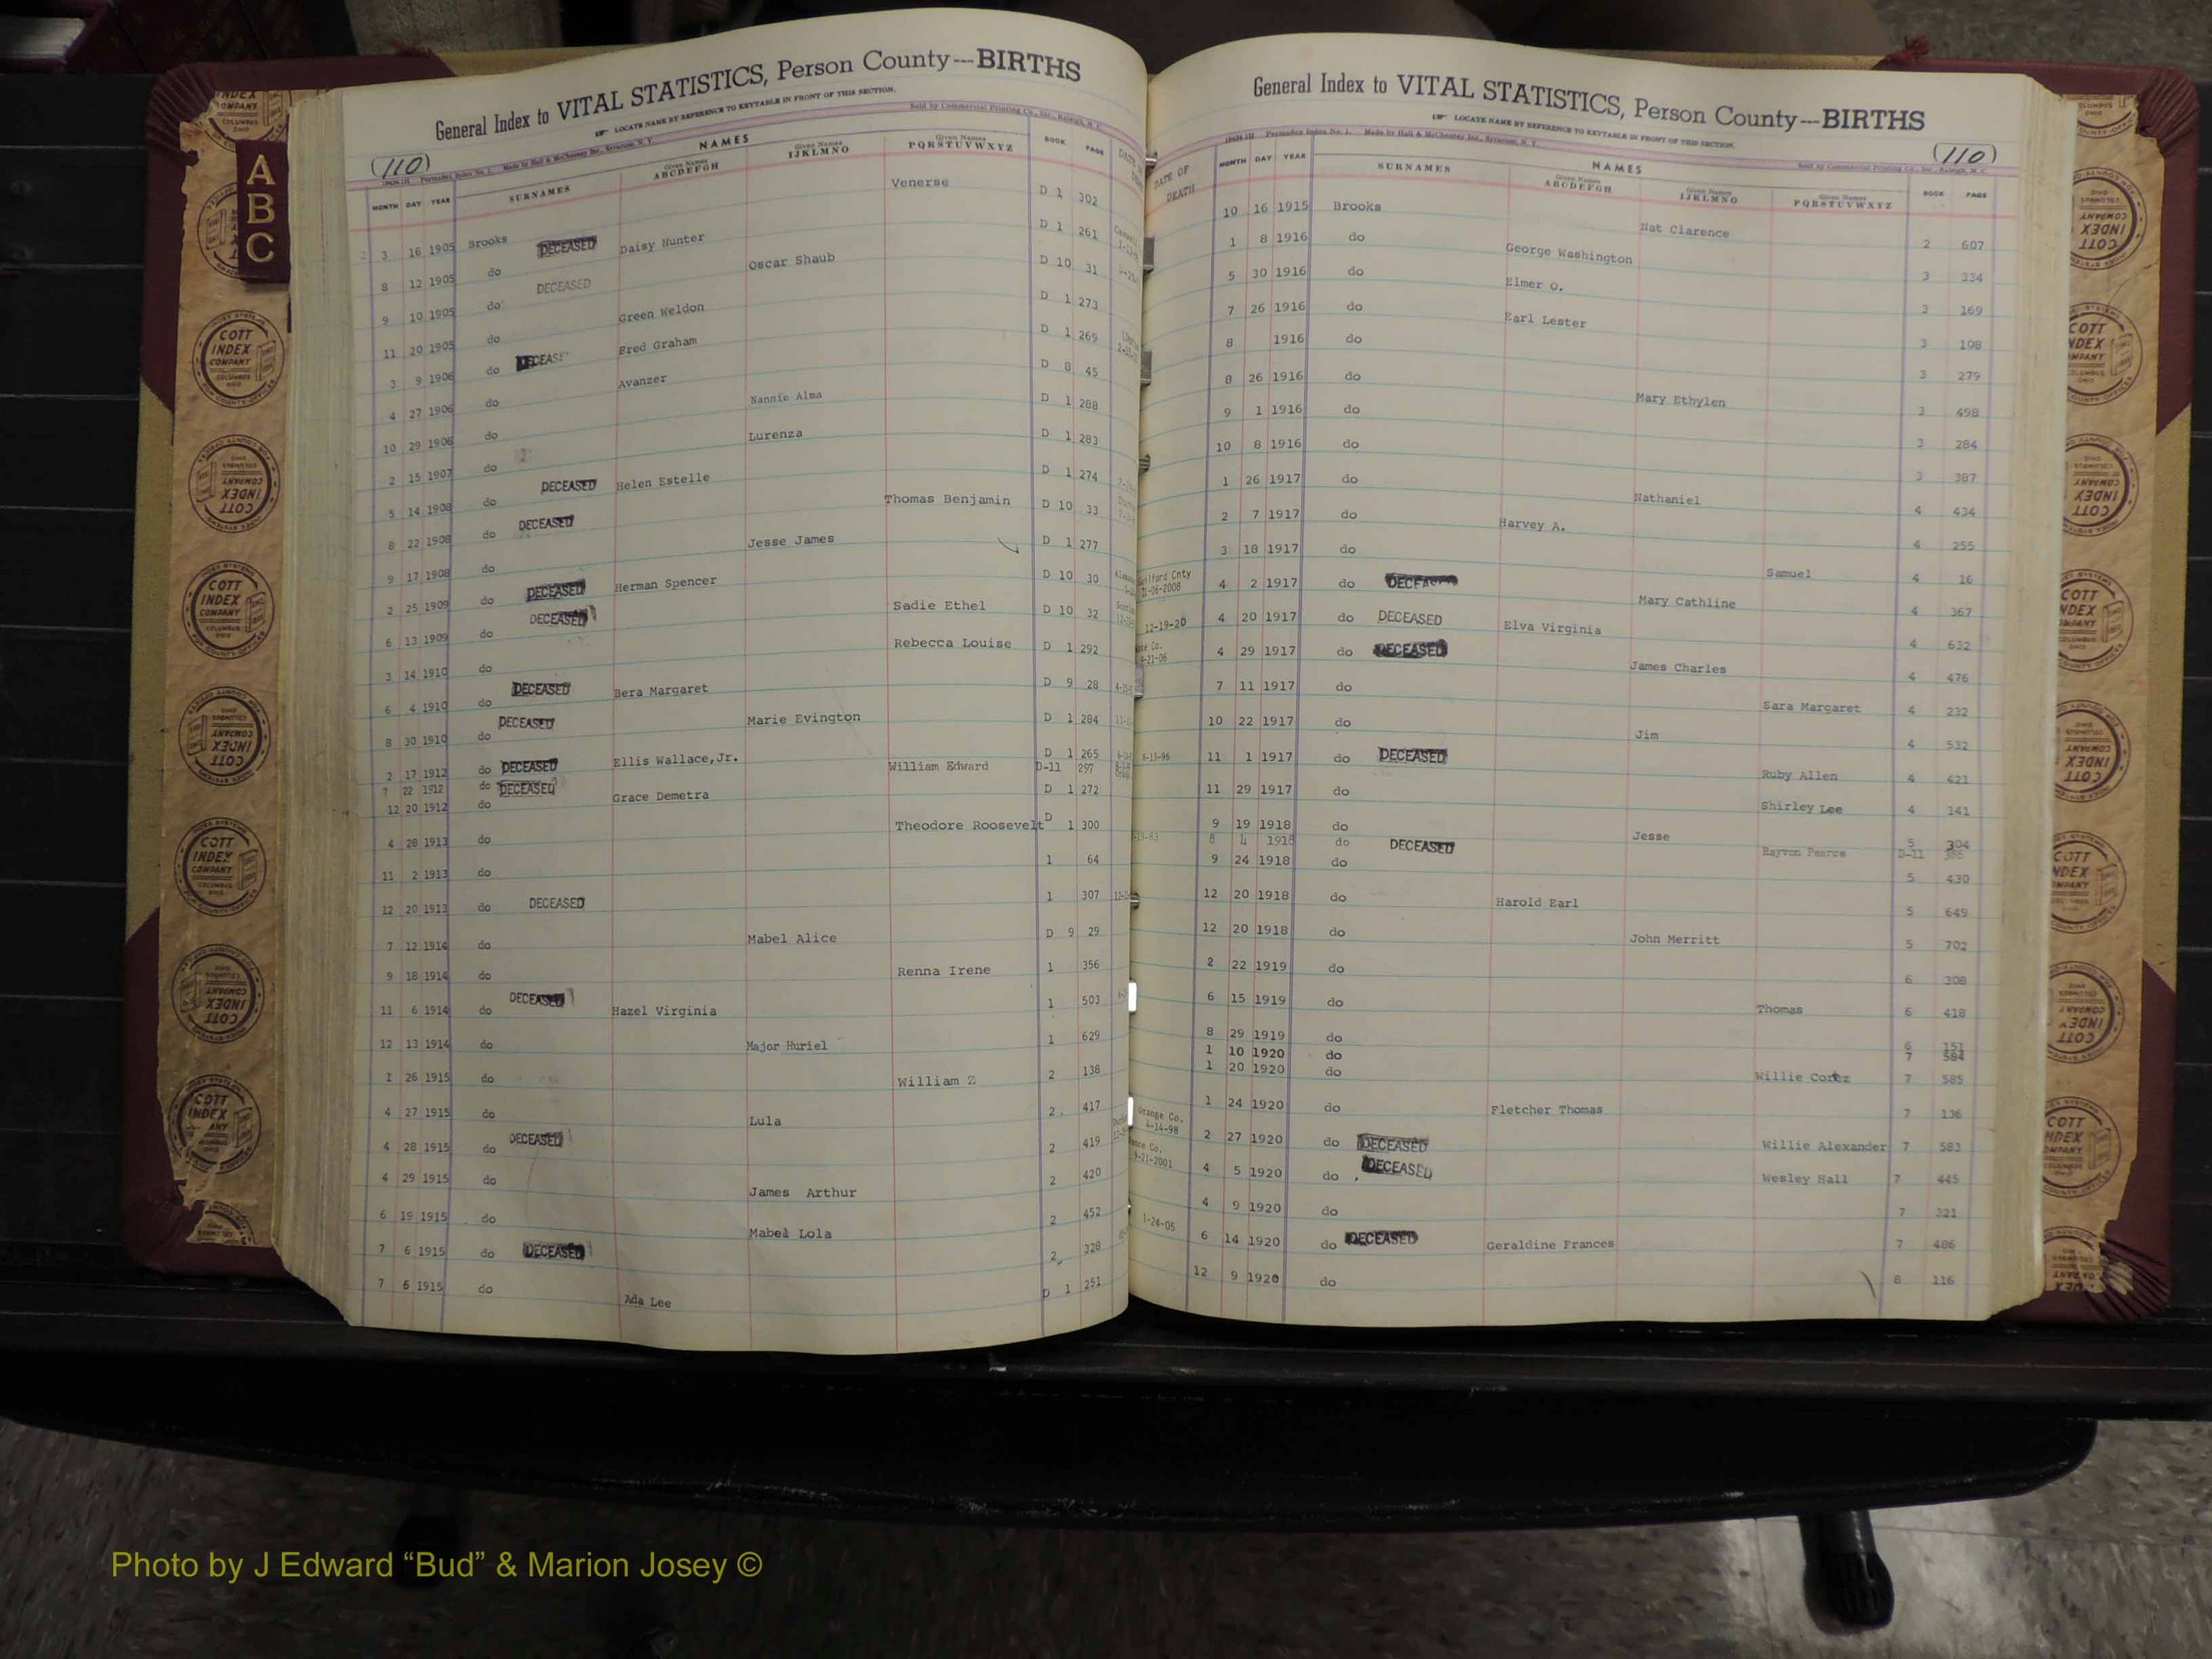 General Index to VITAL STATISTICS, Person County---BIRTHS
LOCATE NAME BY REFERENCE TO KEYTABLE IN FRONT OF THIS SECTION.
(110)
Made by Hall & McChesney Inc., Syracuse, N. Y. Sold by Commercial Printing Co., Inc., Raleigh, N. C.
NAMES
MONTH DAY YEAR SURNAMES Given Names ABCDEFGH Given Names IJKLMNO Given Names PQRSTUVWXYZ BOOK PAGE
3 16 1905 Brooks DECEASED Venerse D 1 302
8 12 1905 do DECEASED Daisy Hunter D 1 261
9 10 1905 do Oscar Shaub D 10 31
11 20 1905 do Green Weldon D 1 273
3 9 1906 do Fred Graham D 1 269
4 27 1906 do Avanzer D 8 45
10 29 1906 do Nannie Alma D 1 288
2 15 1907 do Lurenza D 1 283
5 14 1908 do DECEASED Helen Estelle D 1 274
8 22 1908 do DECEASED Thomas Benjamin D 10 33
9 17 1908 do Jesse James D 1 277
2 25 1909 do DECEASED Herman Spencer D 10 30
6 13 1909 do DECEASED Sadie Ethel D 10 32
3 14 1910 do Rebecca Louise D 1 292
6 4 1910 do DECEASED Bera Margaret D 9 28
8 30 1910 do DECEASED Marie Evington D 1 284
2 17 1912 do DECEASED Ellis Wallace,Jr. D 1 265
7 22 1912 do DECEASED William Edward D-11 297
12 20 1912 do Grace Demetra D 1 272
4 28 1913 do Theodore Roosevelt D 1 300
11 2 1913 do 1 64
12 20 1913 do DECEASED 1 307
7 12 1914 do Mabel Alice D 9 29
9 18 1914 do Renna Irene 1 356
11 6 1914 do DECEASED Hazel Virginia 1 503
12 13 1914 do Major Huriel 1 629
1 26 1915 do William Z 2 138
4 27 1915 do Lula 2 417
4 28 1915 do DECEASED 2 419
4 29 1915 do James Arthur 2 420
6 19 1915 do Mabel Lola 2 452
7 6 1915 do DECEASED 2 328
7 6 1915 do Ada Lee D 1 251
General Index to VITAL STATISTICS, Person County---BIRTHS
LOCATE NAME BY REFERENCE TO KEYTABLE IN FRONT OF THIS SECTION.
(110)
Permaflex Index No. 1. Made by Hall & McChesney Inc., Syracuse, N. Y. Sold by Commercial Printing Co., Inc., Raleigh, N. C.
NAMES
DATE OF DEATH MONTH DAY YEAR SURNAMES Given Names ABCDEFGH Given Names IJKLMNO Given Names PQRSTUVWXYZ BOOK PAGE
10 16 1915 Brooks Nat Clarence 2 607
1 8 1916 do George Washington 3 334
5 30 1916 do Elmer O. 3 169
7 26 1916 do Earl Lester 3 108
8 1916 do 3 279
8 26 1916 do Mary Ethylen 3 498
9 1 1916 do 3 284
10 8 1916 do 3 387
1 26 1917 do Nathaniel 4 434
2 7 1917 do Harvey A. 4 255
3 18 1917 do Samuel 4 16
4 2 1917 do DECEASED Mary Cathline 4 367
12-19-20 4 20 1917 do DECEASED Elva Virginia 4 632
4 29 1917 do DECEASED James Charles 4 476
7 11 1917 do Sara Margaret 4 232
10 22 1917 do Jim 4 532
8-13-96 11 1 1917 do DECEASED Ruby Allen 4 421
11 29 1917 do Shirley Lee 4 141
9 19 1918 do Jesse 5 304
8 4 1918 do DECEASED Rayvon Pearce D-11
9 24 1918 do 5 430
12 20 1918 do Harold Earl 5 649
12 20 1918 do John Merritt 5 702
2 22 1919 do 6 308
6 15 1919 do Thomas 6 418
8 29 1919 do 6 151
1 10 1920 do 7 584
1 20 1920 do Willie Corez 7 585
1 24 1920 do Fletcher Thomas 7 136
Orange Co. 4-14-98 2 27 1920 do DECEASED Willie Alexander 7 583
9-21-2001 4 5 1920 do DECEASED Wesley Hall 7 445
4 9 1920 do 7 321
1-24-05 6 14 1920 do DECEASED Geraldine Frances 7 486
12 9 1920 do 8 116
A
B
C
COTT INDEX COMPANY
Photo by J Edward “Bud” & Marion Josey ©